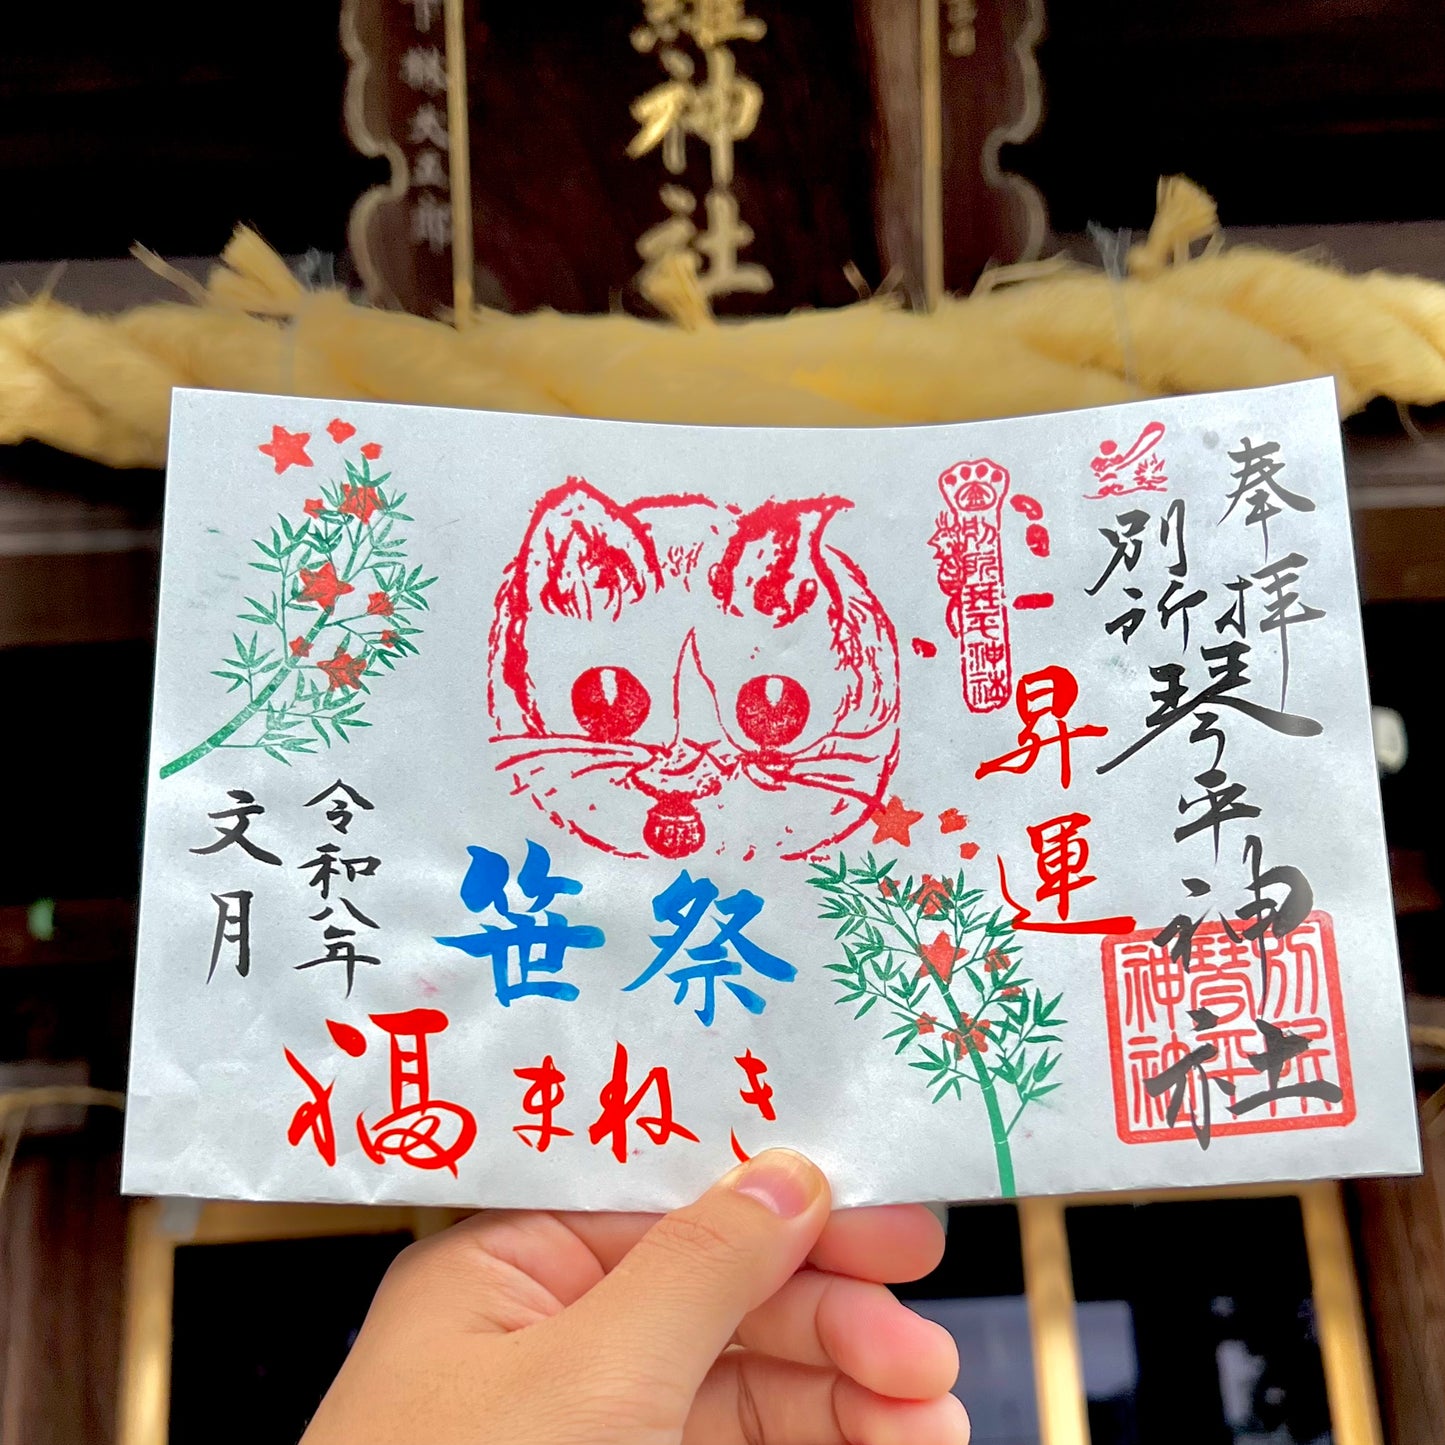 羅神社
奉拝
別所琴平神社
昇運
金
別所琴平神社
別所
琴平
神社
笹祭
福まねき
令和八年
文月